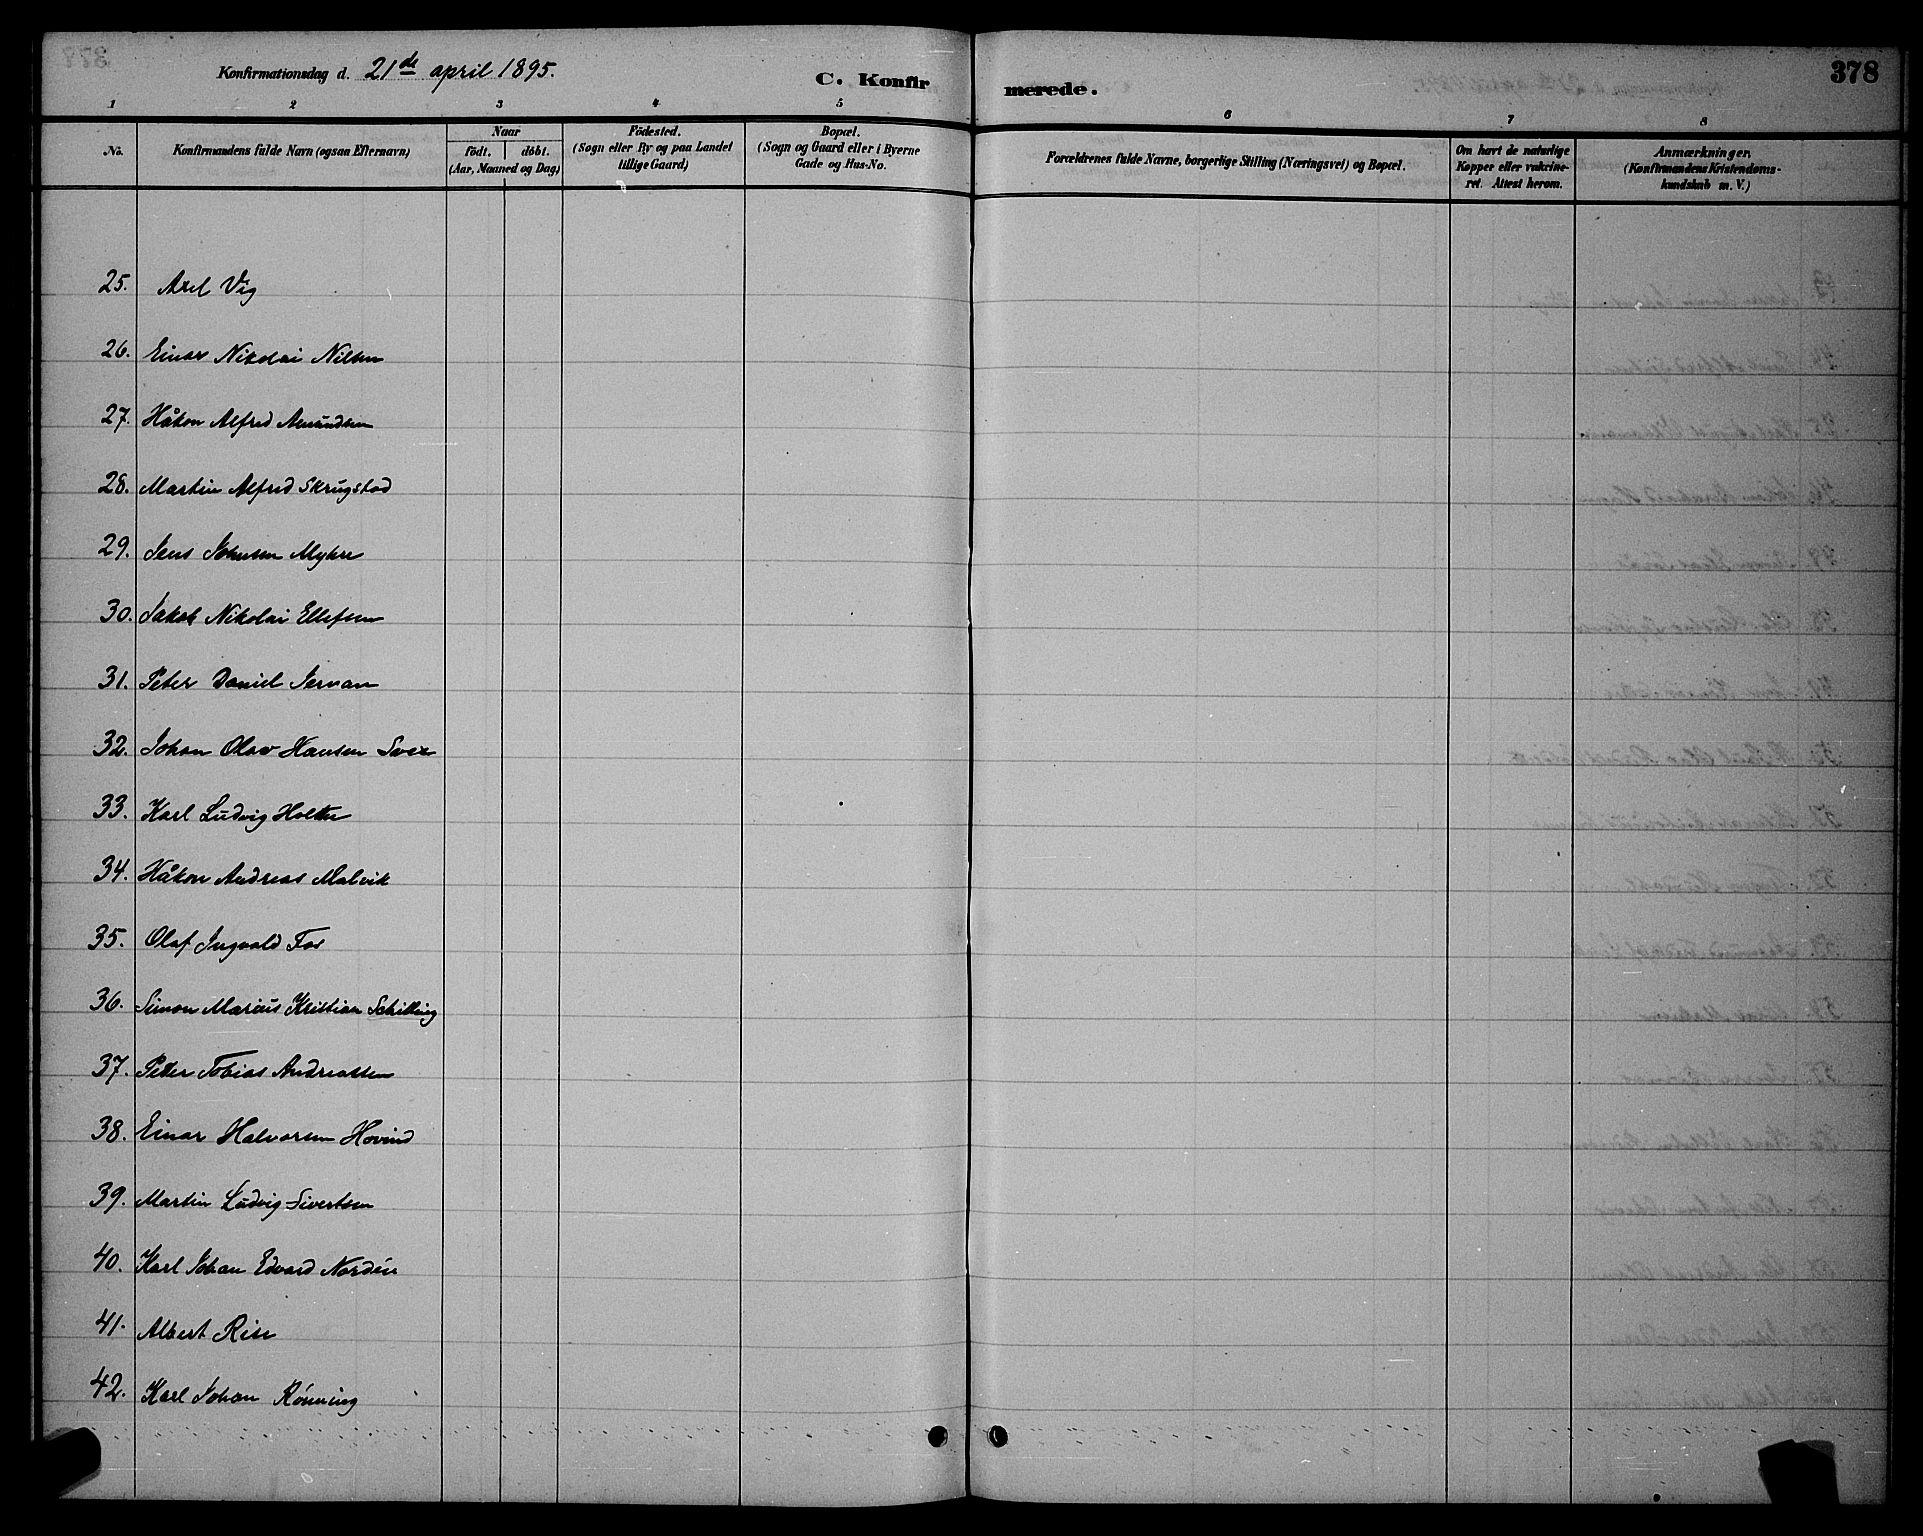 Konfirmationsdag d. 21de april 1895.
C. Konfirmerede.
378
1 2 3 4 5 6 7 8
No.
Konfirmandens fulde Navn (ogsaa Efternavn)
Naar
födt. döbt.
(Aar, Maaned og Dag)
Födested.
(Sogn eller By og paa Landet
tillige Gaard)
Bopæl.
(Sogn og Gaard eller i Byerne
Gade og Hus-No.
Forældrenes fulde Navne, borgerlige Stilling (Næringsvei) og Bopæl.
Om havt de naturlige
Kopper eller vakcine-
ret. Attest herom.
Anmærkninger.
(Konfirmandens Kristendoms-
kundskab m. V.)
25. Axel Vig
26. Einar Nikolai Nilsen
27. Håkon Alfred Amundsen
28. Martin Alfred Skrugstad
29. Jens Johnsen Myhre
30. Jakob Nikolai Ellefsen
31. Peter Daniel Jervan
32. Johan Olav Hansen
33. Karl Ludvig Holthe
34. Håkon Andreas Malvik
35. Olaf Ingvald Fos
36. Simon Marius Kristian Schilling
37. Peter Tobias Andreassen
38. Einar Halvorsen Hovind
39. Martin Ludvig Sivertsen
40. Karl Johan Edvard Nordén
41. Albert Rise
42. Karl Johan Rönning